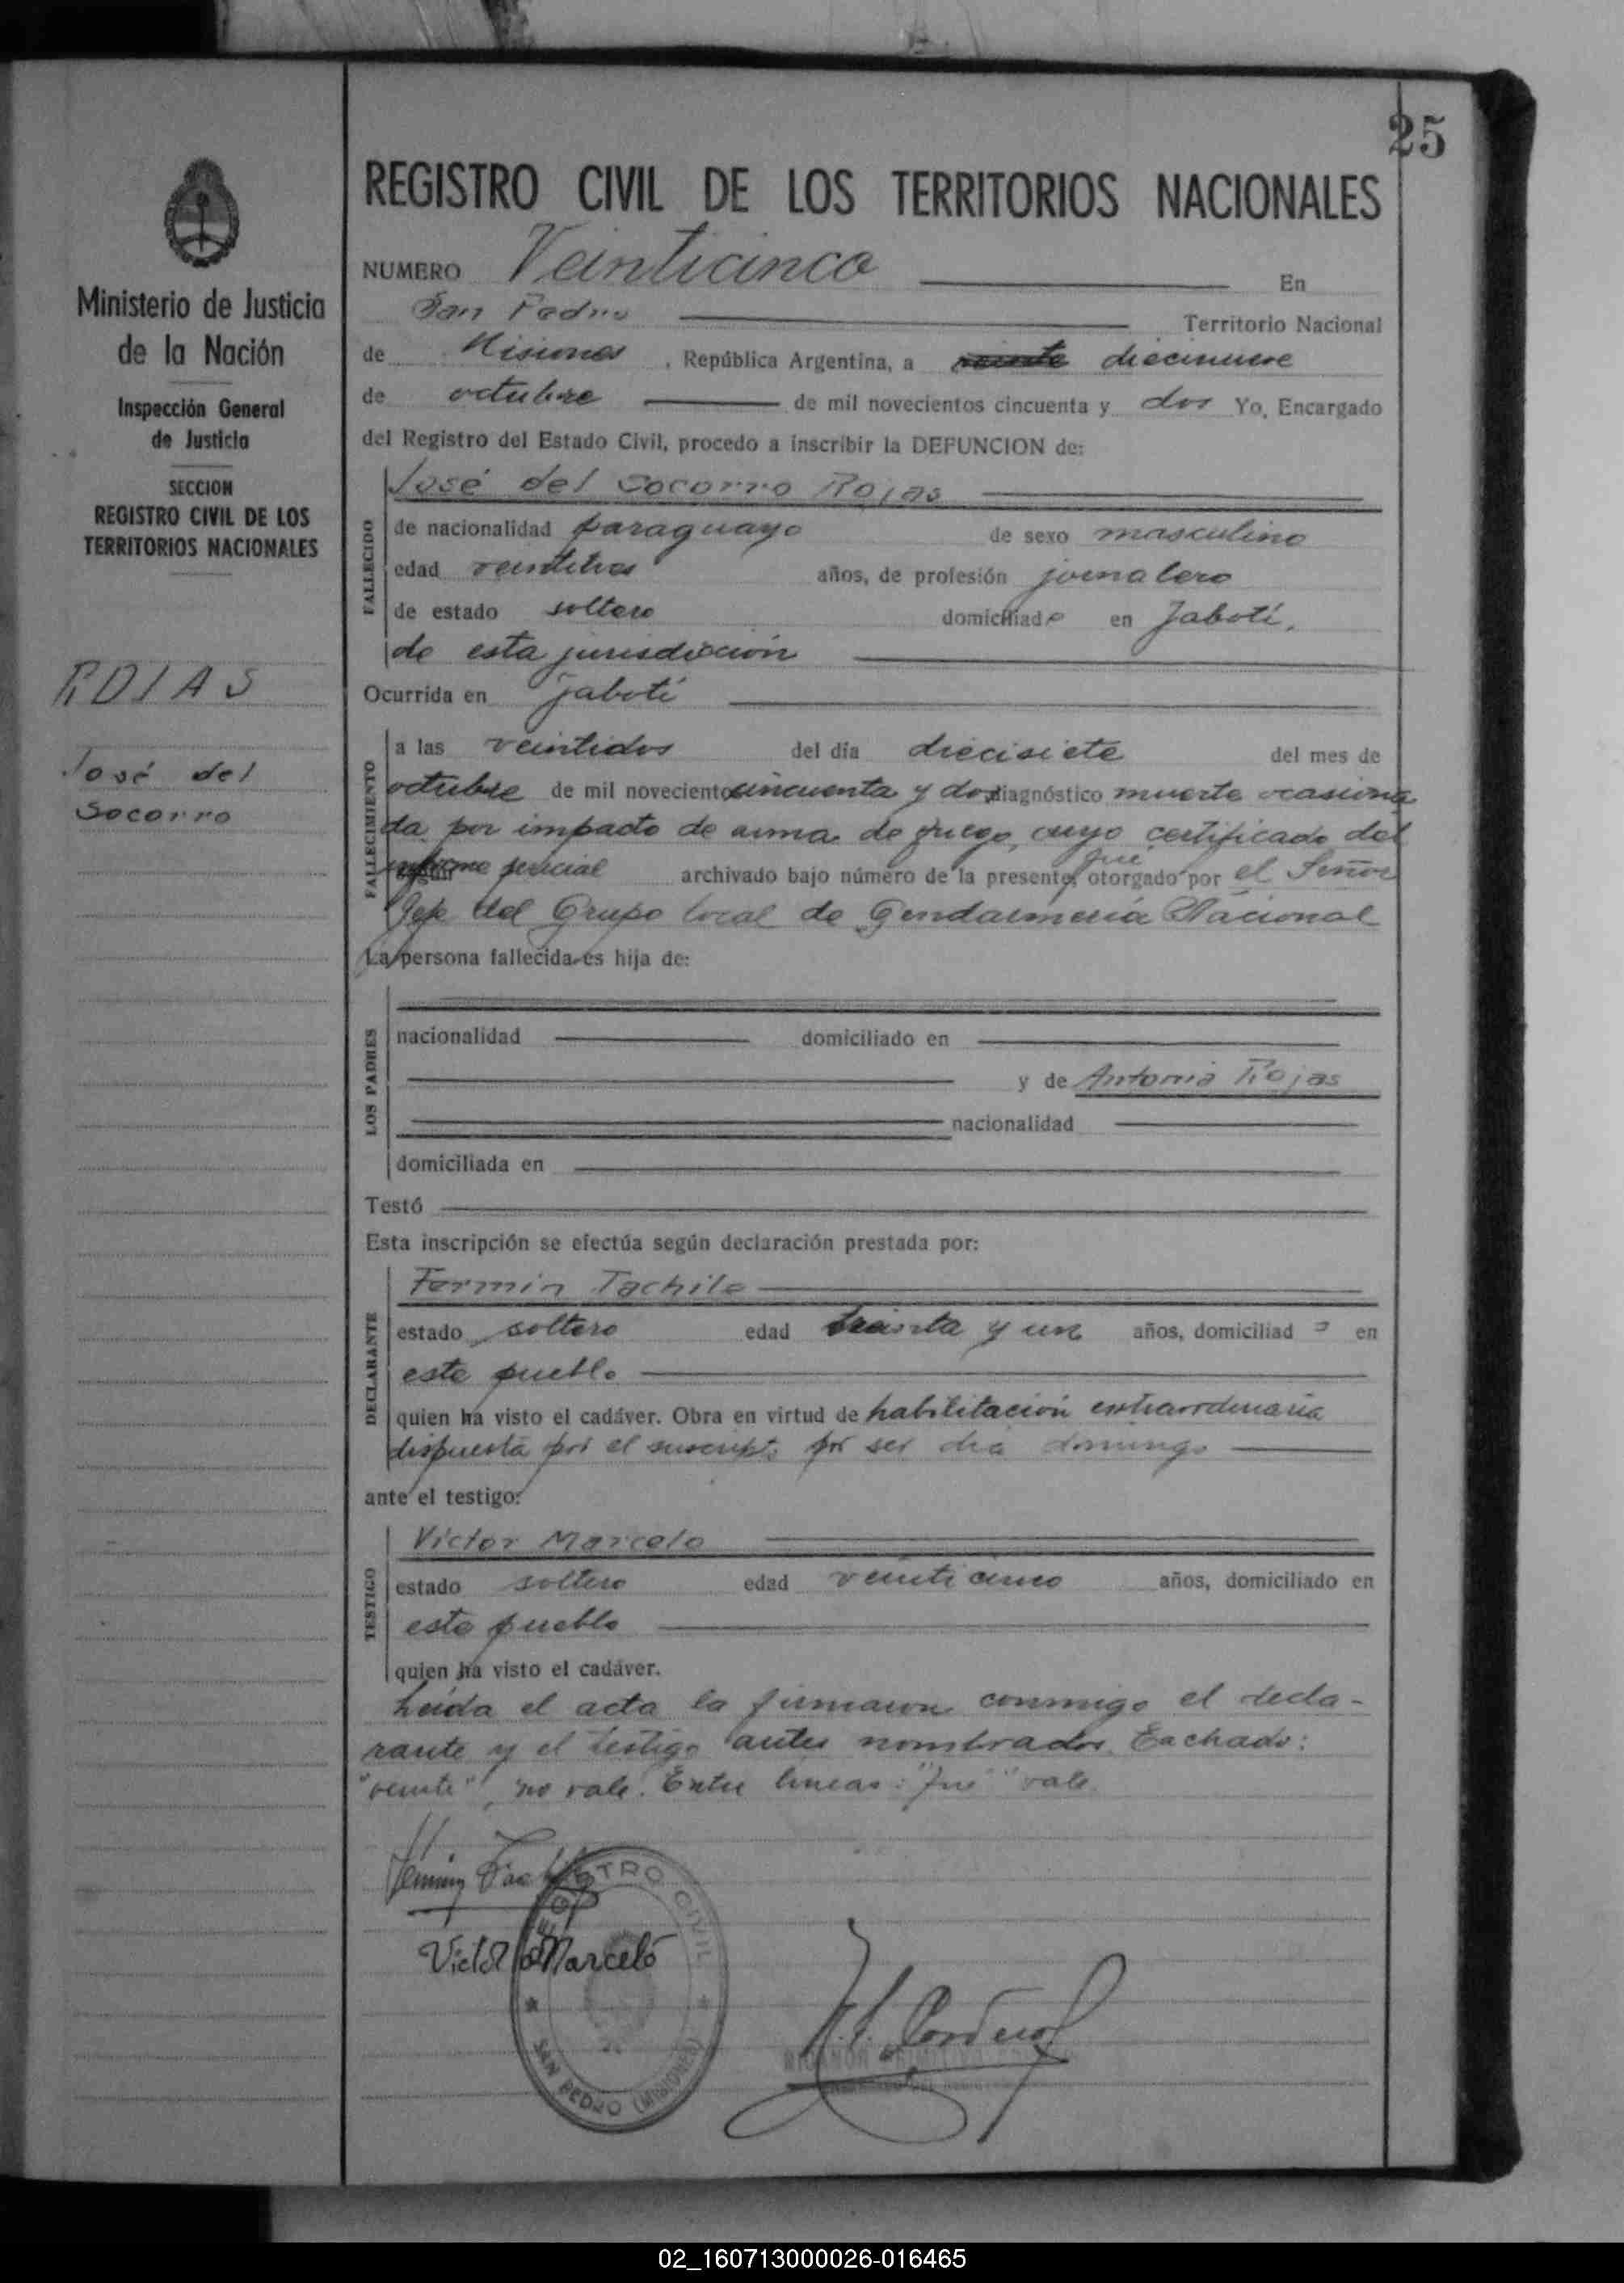 25
REGISTRO CIVIL DE LOS TERRITORIOS NACIONALES
Ministerio de Justicia
de la Nación
Inspección General
de Justicia
SECCION
REGISTRO CIVIL DE LOS
TERRITORIOS NACIONALES
ROJAS
José del
Socorro
NUMERO Veinticinco En
San Pedro Territorio Nacional
de Misiones, República Argentina, a veinte diecinueve
de octubre de mil novecientos cincuenta y dos Yo, Encargado
del Registro del Estado Civil, procedo a inscribir la DEFUNCION de:
José del Socorro Rojas
FALLECIDO
de nacionalidad paraguayo de sexo masculino
edad veintitres años, de profesión jornalero
de estado soltero domiciliado en Jabotí,
de esta jurisdicción
Ocurrida en Jabotí
FALLECIMIENTO
a las veintidos del día diecisiete del mes de
octubre de mil novecientos cincuenta y dos diagnóstico muerte ocasiona
da por impacto de arma de fuego, cuyo certificado del
informe pericial archivado bajo número de la presente, fué otorgado por el Señor
Jefe del Grupo local de Gendarmería Nacional
La persona fallecida es hija de:
LOS PADRES
nacionalidad domiciliado en
y de Antonia Rojas
nacionalidad
domiciliada en
Testó
Esta inscripción se efectúa según declaración prestada por:
DECLARANTE
Fermin Tachile
estado soltero edad treinta y un años, domiciliado en
este pueblo
quien ha visto el cadáver. Obra en virtud de habilitación extraordinaria
dispuesta por el suscripto por ser día domingo
ante el testigo:
TESTIGO
Victor Marcelo
estado soltero edad veinticinco años, domiciliado en
este pueblo
quien ha visto el cadáver.
Leída el acta la firmaron conmigo el decla-
rante y el testigo antes nombrados. Tachado:
"veinte", no vale. Entre lineas: "fué" vale.
Victor Marceló
REGISTRO CIVIL
SAN PEDRO (MISIONES)
02_160713000026-016465